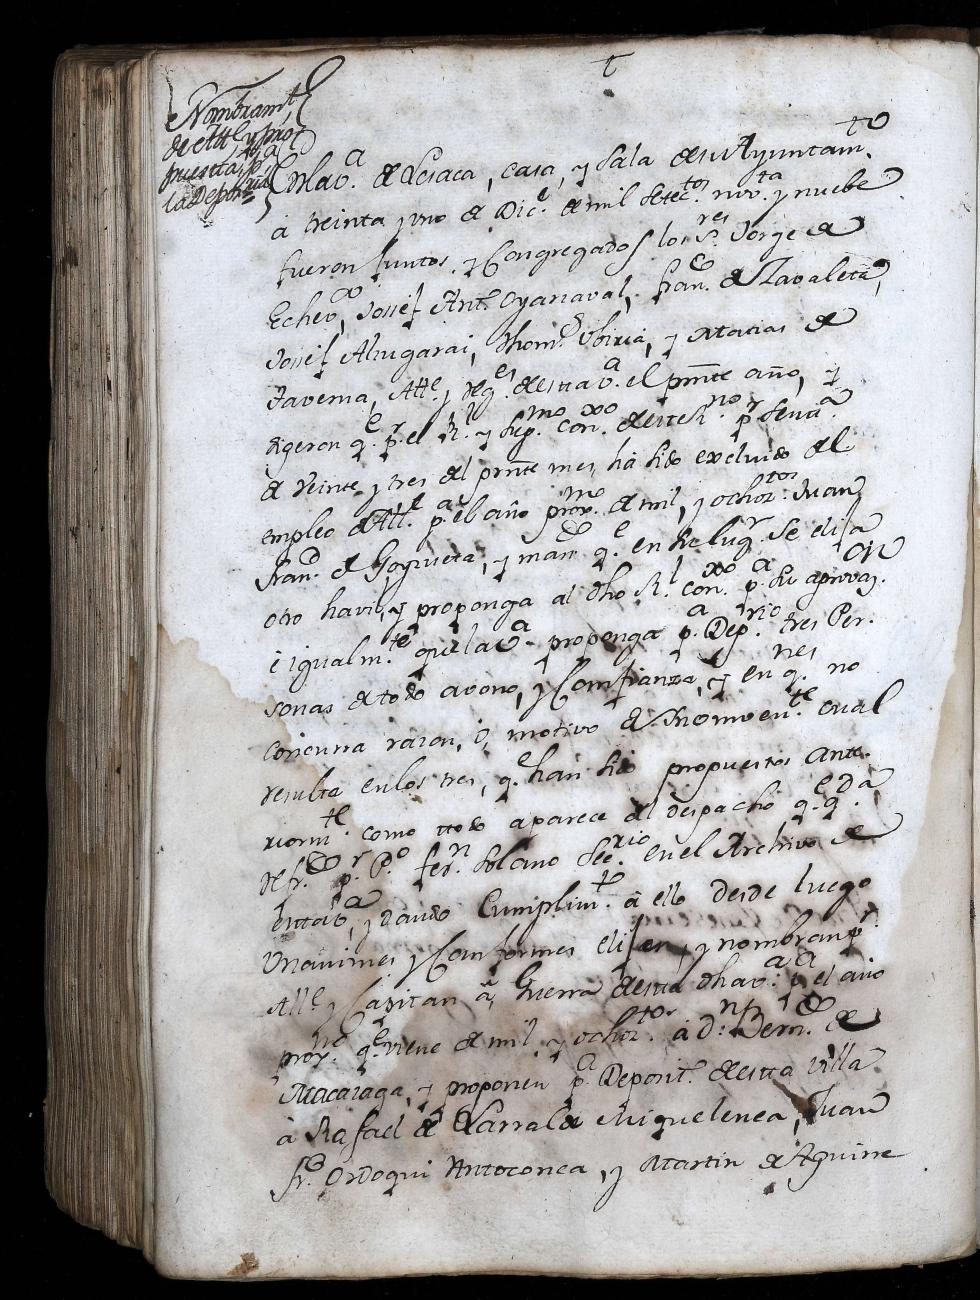 t
Nombramt.
de Alle. y pro
puesta pa.
la Depoz.ria
En la va. de Lesaca, casa, y sala de su Ayuntam.to
à treinta y uno de Dice. de mil setec.tos nov.ta y nuebe
fueron juntos, y Congregados los S.res Jorge de
Echevª, Josseph Ant.º Oyanaval, Fran.co de Zavaleta,
Josseph Alzugarai, Thom.s Ubiria, y Matias de
Taverna, Alle. y Reg.es de esta v.ª el prnte año, y
digeron q.e p.r el R.l y Sup.mo con.xo de este R.no p.r senta
de veinte y tres del prnte mes, ha sido excluido del
empleo de All.e p.a el año prox.mo de mil, y ochoz.tos Juan
Fran.co de Goyzueta, y man.do q.e en su lug.r se elija
otro havil, y proponga al dho R.l con.xo p.a su aprovaz.on
è igualm.te que la v.a proponga p.a Dep.rio tres Per.
sonas de todo avono, y Confianza, y en q.nes no
concurra razon, ó motivo de Ynconven.te cual
resulta en los tres, q.e han sido propuestos ante.
riorm.te como todo aparece del despachó q.e q.da
refr.do p.r P.º Fer.n Solano Secrio. en el Archivo de
esta v.a, y dando Cumplim.to â ello desde luego
Unanimes y Conformes elijen, y nombran p.r
All.e y Capitan â Guerra de esta dha v.a p.a el año
prox.mo q.e viene de mil y ochoz.tos à D.n Bern.do de
Macazaga, y proponen p.a Deposit.º de esta villa
à Rafael de Larralde Miquelenea, Juan
Fr.co Ordoqui Antoconea, y Martin de Aguirre